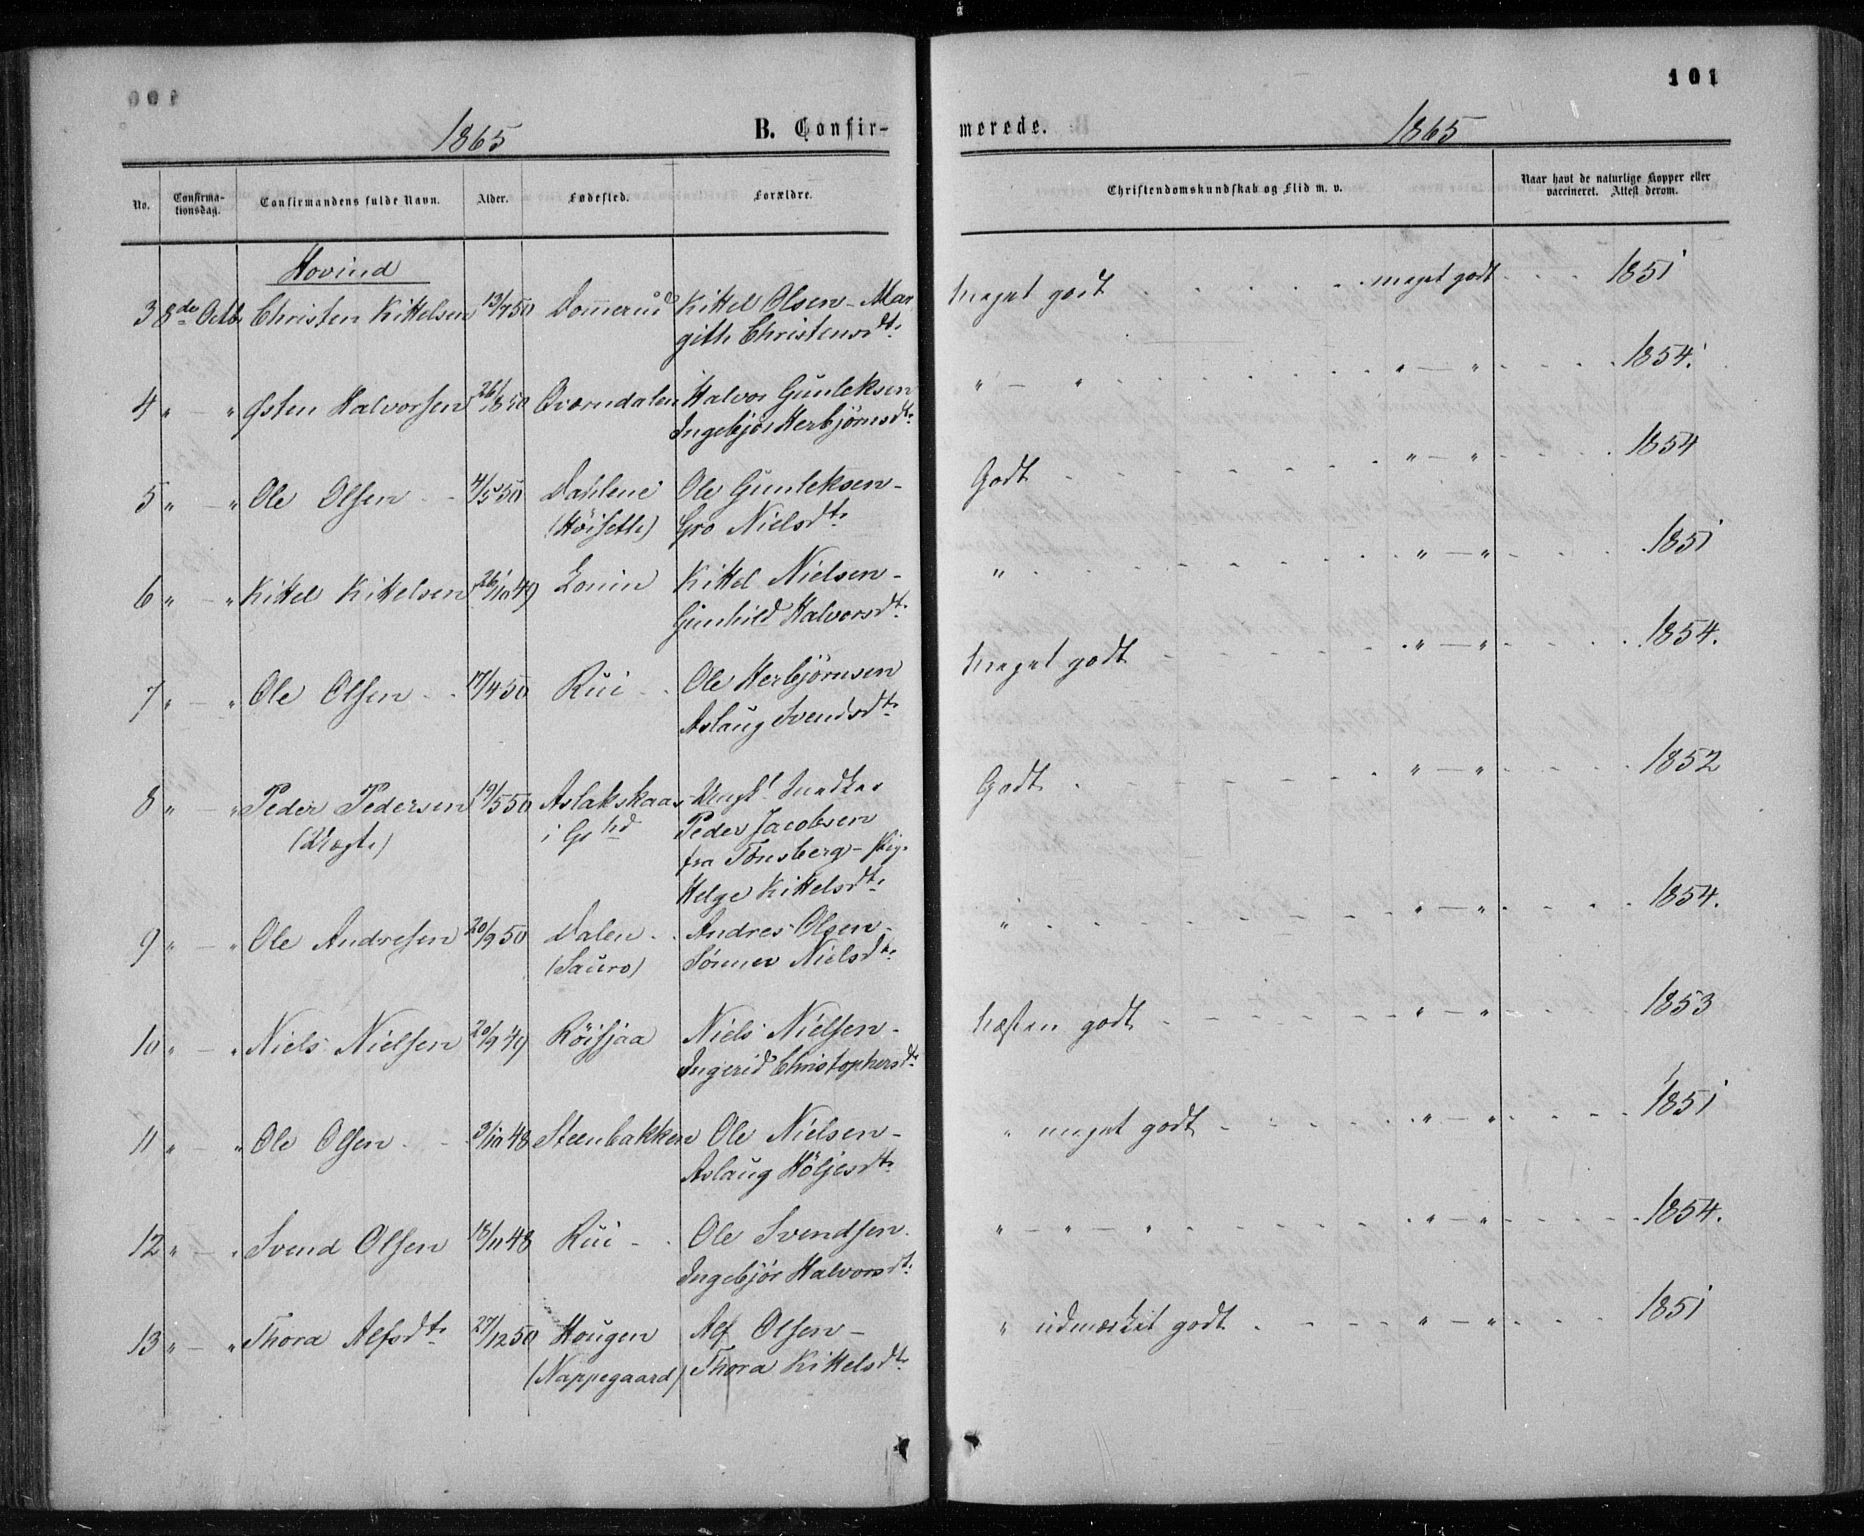 101
1865 B. Confir- merede. 1865
No. Confirmationsdag. Confirmandens fulde Navn. Alder. Fødested. Forældre. Christendomskundskab og Flid m. v. Naar havt de naturlige Kopper eller vaccineret. Attest derom.
Hovind
3 8de Octbr Christen Kittelsen 13/7 50 Dommerud Kittel Olsen - Mar meget godt meget godt 1851
gith Christensdt.
4 " — " Østen Halvorsen 26/8 50 Qværndalen Halvor Gunleksen " — " " — " 1854.
Ingebjør Herbjørnsdt.
5 " — " Ole Olsen 4/5 50 Dahlene Ole Gunleksen - Godt " — " 1854
(Höiseth) Gro Nielsdt.
6 " — " Kittel Kittelsen 26/10 49 Lonin Kittel Nielsen - " " — " 1851
Gunhild Halvorsdt.
7 " — " Ole Olsen 17/4 50 Rui Ole Herbjørnsen meget godt " — " 1854.
Aslaug Svendsdt.
8 " — " Peder Pedersen 19/5 50 Aslakskaas Ungk. Snedker Godt " — " 1852
(Uægte) i Grhd Peder Jacobsen
fra Tønsberg - Pig.
Helge Kittelsdt.
9 " — " Ole Andresen 20/9 50 Dalen Andres Olsen - " " — " 1854.
(Sauro) Sønner Nielsdt.
10 " — " Niels Nielsen 20/9 49 Röisjaa Niels Nielsen - Næsten godt " — " 1853
Ingerid Christophersdt.
11 " — " Ole Olsen 3/10 48 Steenbakken Ole Nielsen - " meget godt " — " 1851
Aslaug Höljesdt.
12 " — " Svend Olsen 13/11 48 Rui Ole Svendsen " — " — " " — " 1854.
Ingebjør Halvorsdt.
13 " — " Thora Alfsdt. 27/12 50 Hougen Alf Olsen - " udmærket godt " — " 1851
(Nappegaard) Thora Kittelsdt.